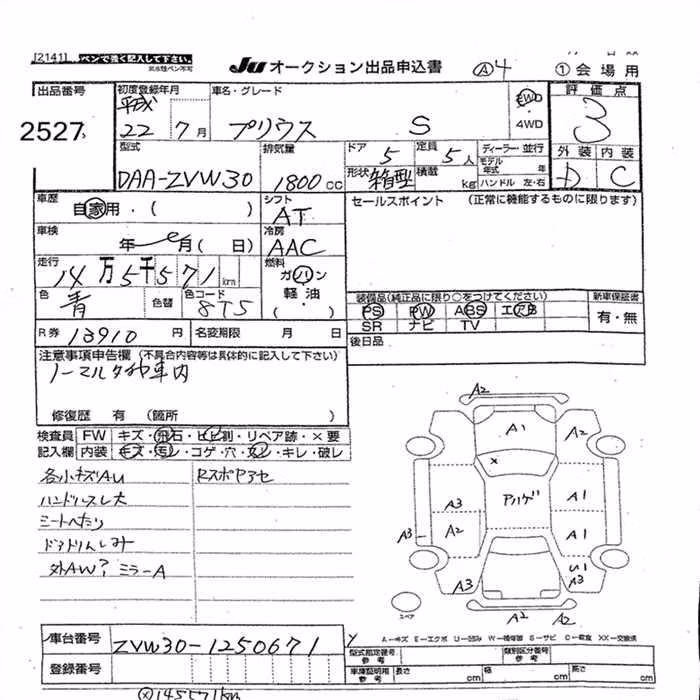 [2141] ペンで強く記入して下さい。
JU オークション出品申込書 Ⓐ4 ①会場用
出品番号 初度登録年月 車名・グレード 評価点
2527 平成22 7月 プリウス S 2WD ・ 4WD 3
型式 排気量 ドア 5 定員 5人 ディーラー 並行 外装 内装
DAA-ZVW30 1800cc 形状 箱型 積載 kg モデル年式 年 ハンドル 左・右 D C
車歴 自家用・( ) シフト AT セールスポイント (正常に機能するものに限ります)
車検 年 月( 日) 冷房 AAC
走行 14万5千571km 燃料 ガソリン
軽油
( ・ )
色 青 色替 色コード 8T5
装備品(純正品に限り○をつけてください) 新車保証書
PS PW ABS エアB 有・無
SR ナビ TV
R券 13910円 名変期限 月 日 後日品
注意事項申告欄 (不具合内容等は具体的に記入して下さい)
ノーマルタイヤ車内
修復歴 有 (箇所 )
検査員 FW キズ・飛石・ヒビ割・リペア跡・×要
記入欄 内装 キズ・汚レ・コゲ・穴・ ・キレ・破レ
各小キズAU RスポPアセ
ハンドルスレ大
シートへたり
ドアトリムしみ
外AW? ミラーA
A2
A1 A2
×
A3 アハゲ A1
A3 A2 A1
U1
A3 A3
スペア A2 A2
A-キズ E-エクボ U-凹み W-補修跡 S-サビ C-腐食 XX-交換済
車台番号 ZVW30-1250671
型式指定番号 参考 類別区分番号 参考
登録番号 車庫証明用 参考 長さ cm 幅 cm 高さ cm
145571km